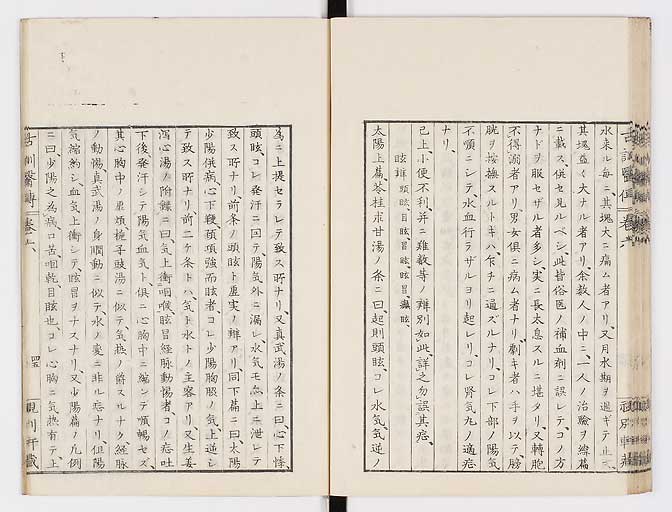 水来ル毎ニ其塊大ニ痛ム者アリ又月水期ヲ過ギテ止
其塊益々大ナル者アリ余数人ノ中ニ一人ノ治験ヲ続篇
ニ載ス供セ見ルベシ此皆俗医ノ補血剤ニ誤レテコノ方
ナドヲ服セザル者多シ実ニ長太息スルニ堪タリ又転胞
不得溺者アリ男女倶ニ病ム者ナリ劇キ者ハ手ヲ以テ膀
胱ヲ按撫スルトキハ乍チニ通ズルナリコレ下部ノ陽気
不順ニシテ水血行ラザルヨリ起レリコレ腎気丸ノ適応
ナリ
已上小便不利并ニ難数等ノ辨別如此詳之勿誤其応
眩辨 頭眩 目眩 冒眩 眩冒 癲眩
太陽上篇苓桂朮甘湯ノ条ニ曰起則頭眩コレ水気気逆ノ
為ニ上捷セラレテ致ス所ナリ又真武湯ノ条ニ曰心下悸
頭眩コレ発汗ニ因テ陽気外ニ漏レ水気モ上ニ泄レテ
致ス所ナリ前条ノ頭眩ト虚実ノ辨アリ同下篇ニ曰太陽
少陽併病心下鞕頸項強而眩者コレ少陽胸脇ノ気上逆シ
テ致ス所ナリ前二ケ条トハ気ト水トノ主客アリ又生姜
瀉心湯ノ附録ニ曰気上衝咽喉眩冒経脉動惕者コノ症吐
下後発汗シテ陽気血気ト倶ニ心胸中ニ縮シテ順暢セズ
其心胸中ノ煩梔子豉湯ニ似テ気熱ノ欝スルナク経脉
ノ動惕真武湯ノ身瞤動ニ似テ水ノ変ニ非ル症ナリ但陽
気縮約シ血気上衝シテ眩冒ヲナスナリ又少陽篇ノ凡例
ニ曰少陽之為病口苦咽乾目眩也コレ心胸ニ気熱有テ上
古訓醫傳 巻十六